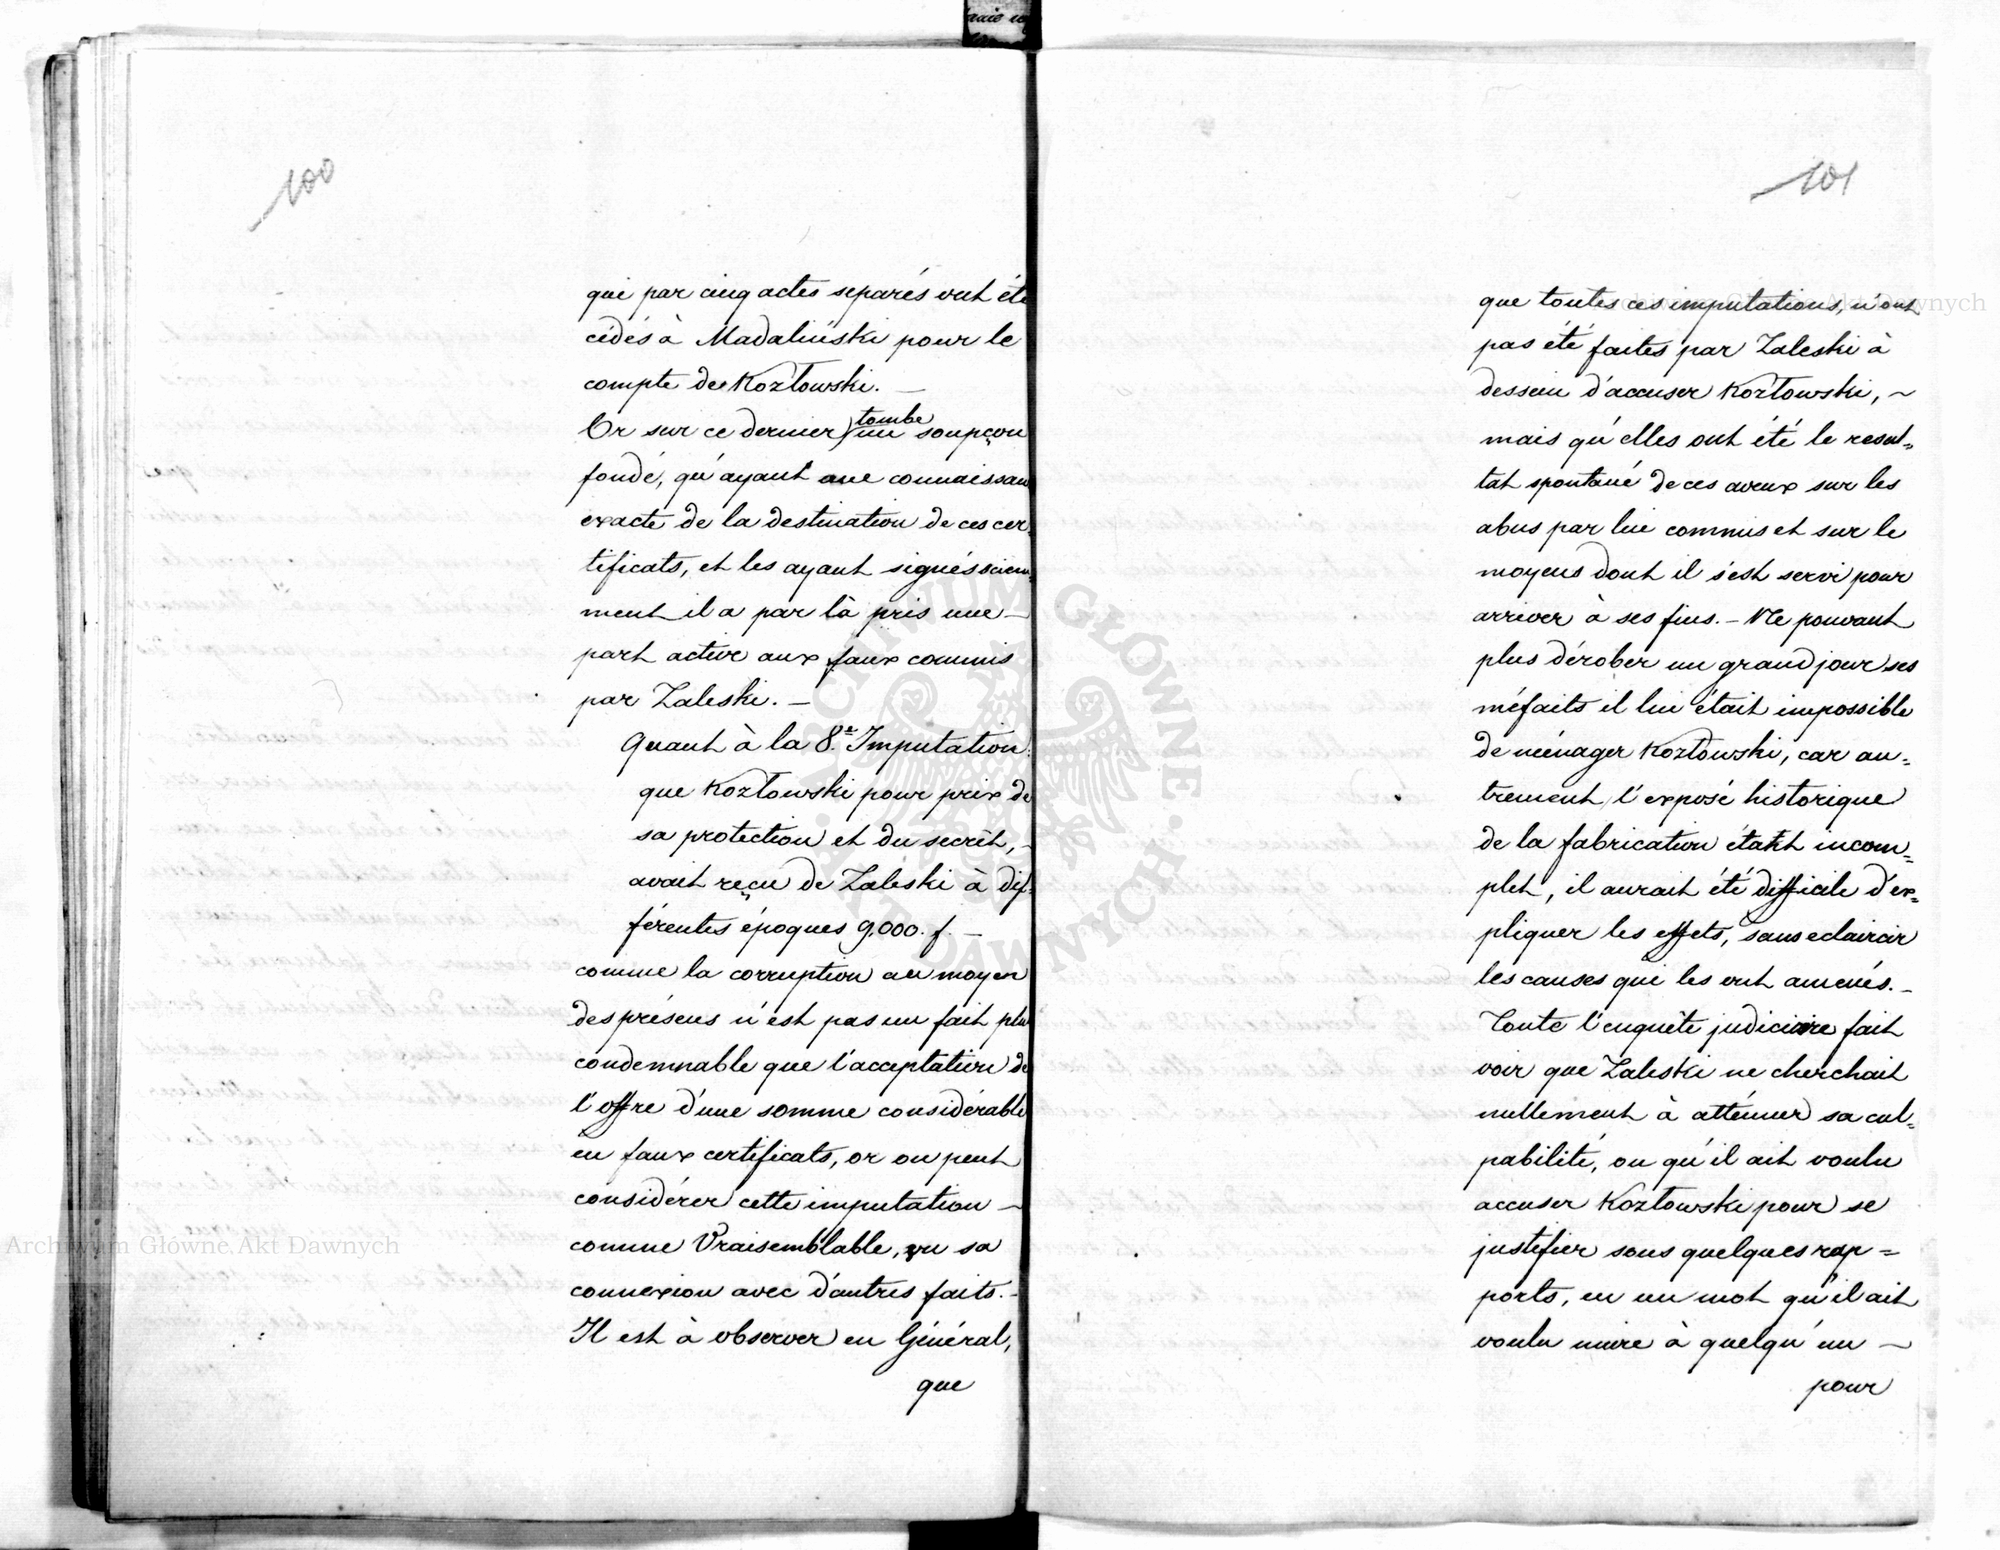 100
que par cinq actes separés ont été
cédés à Madaliński pour le
compte de Kozłowski. —
Or sur ce dernier tombe un soupçon
fondé, qu'ayant une connaissan
exacte de la destination de ces cer
tificats, et les ayant signés sciem
ment il a par là pris une —
part active aux faux commis
par Zaleski. —
Quant à la 8.e Imputation
que Kozłowski pour prix de
sa protection et du secrèt, —
avait reçu de Zaleski à dif
férentes époques 9,000. f. —
comme la corruption au moyen
des présens n'est pas un fait plus
condemnable que l'acceptation de
l'offre d'une somme considérable
en faux certificats, or on peut
considérer cette imputation —
comme Vraisemblable, vu sa
connexion avec d'autres faits. —
Il est à observer en Général,
que
101
que toutes ces imputations, n'ont
pas été faites par Zaleski à
dessein d'accuser Kozłowski, ~
mais qu'elles ont été le resul=
tat spontané de ces aveux sur les
abus par lui commis et sur le
moyens dont il s'est servi pour
arriver à ses fins. — Ne pouvant
plus dérober au grand jour ses
méfaits il lui était impossible
de ménager Kozłowski, car au=
trement l'exposé historique
de la fabrication était incom=
plet, il aurait été difficile d'ex=
pliquer les effets, sans eclaircir
les causes qui les ont amenés. —
Toute l'enquête judiciaire fait
voir que Zaleski ne cherchait
nullement à atténuer sa cul=
pabilité, ou qu'il ait voulu
accuser Kozłowski pour se
justifier sous quelques rap=
ports, en un mot qu'il ait
voulu nuire à quelqu'un —
pour
Archiwum Główne Akt Dawnych